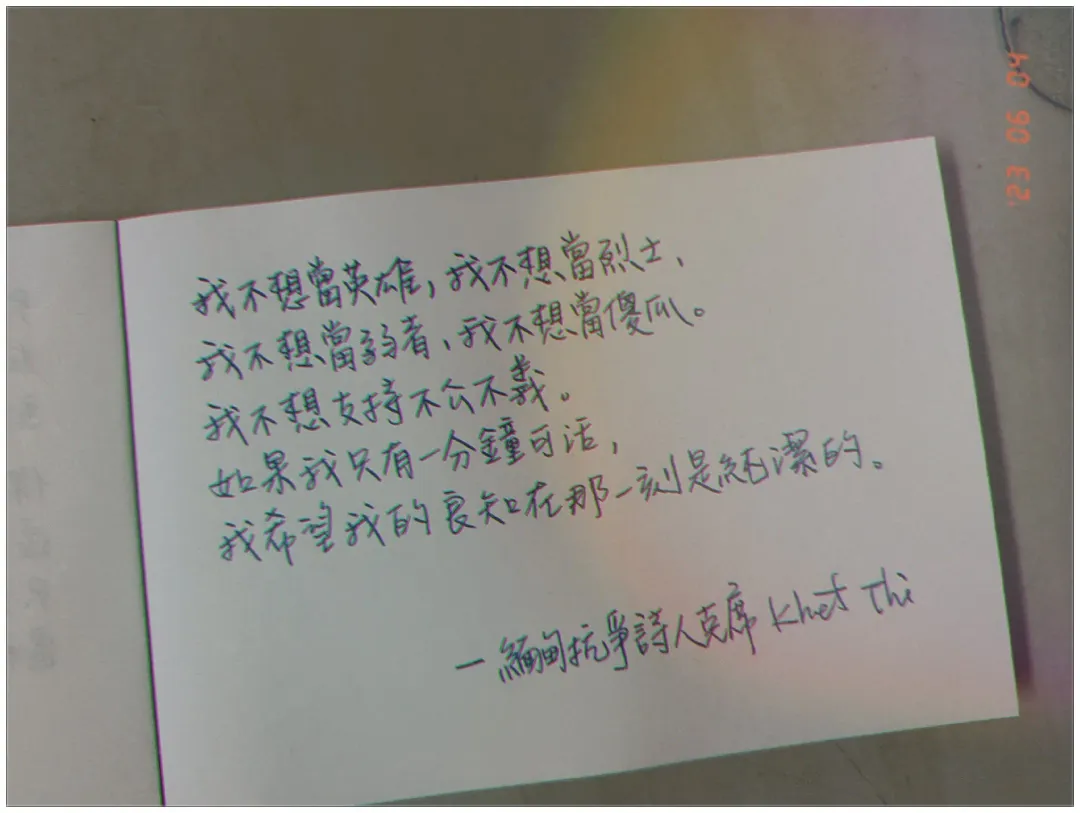 我不想當英雄，我不想當烈士、
我不想當弱者、我不想當傻瓜。
我不想支持不公不義。
如果我只有一分鐘可活，
我希望我的良知在那一刻是純潔的。
— 緬甸抗爭詩人克席 Khet Thi
'23 06 04